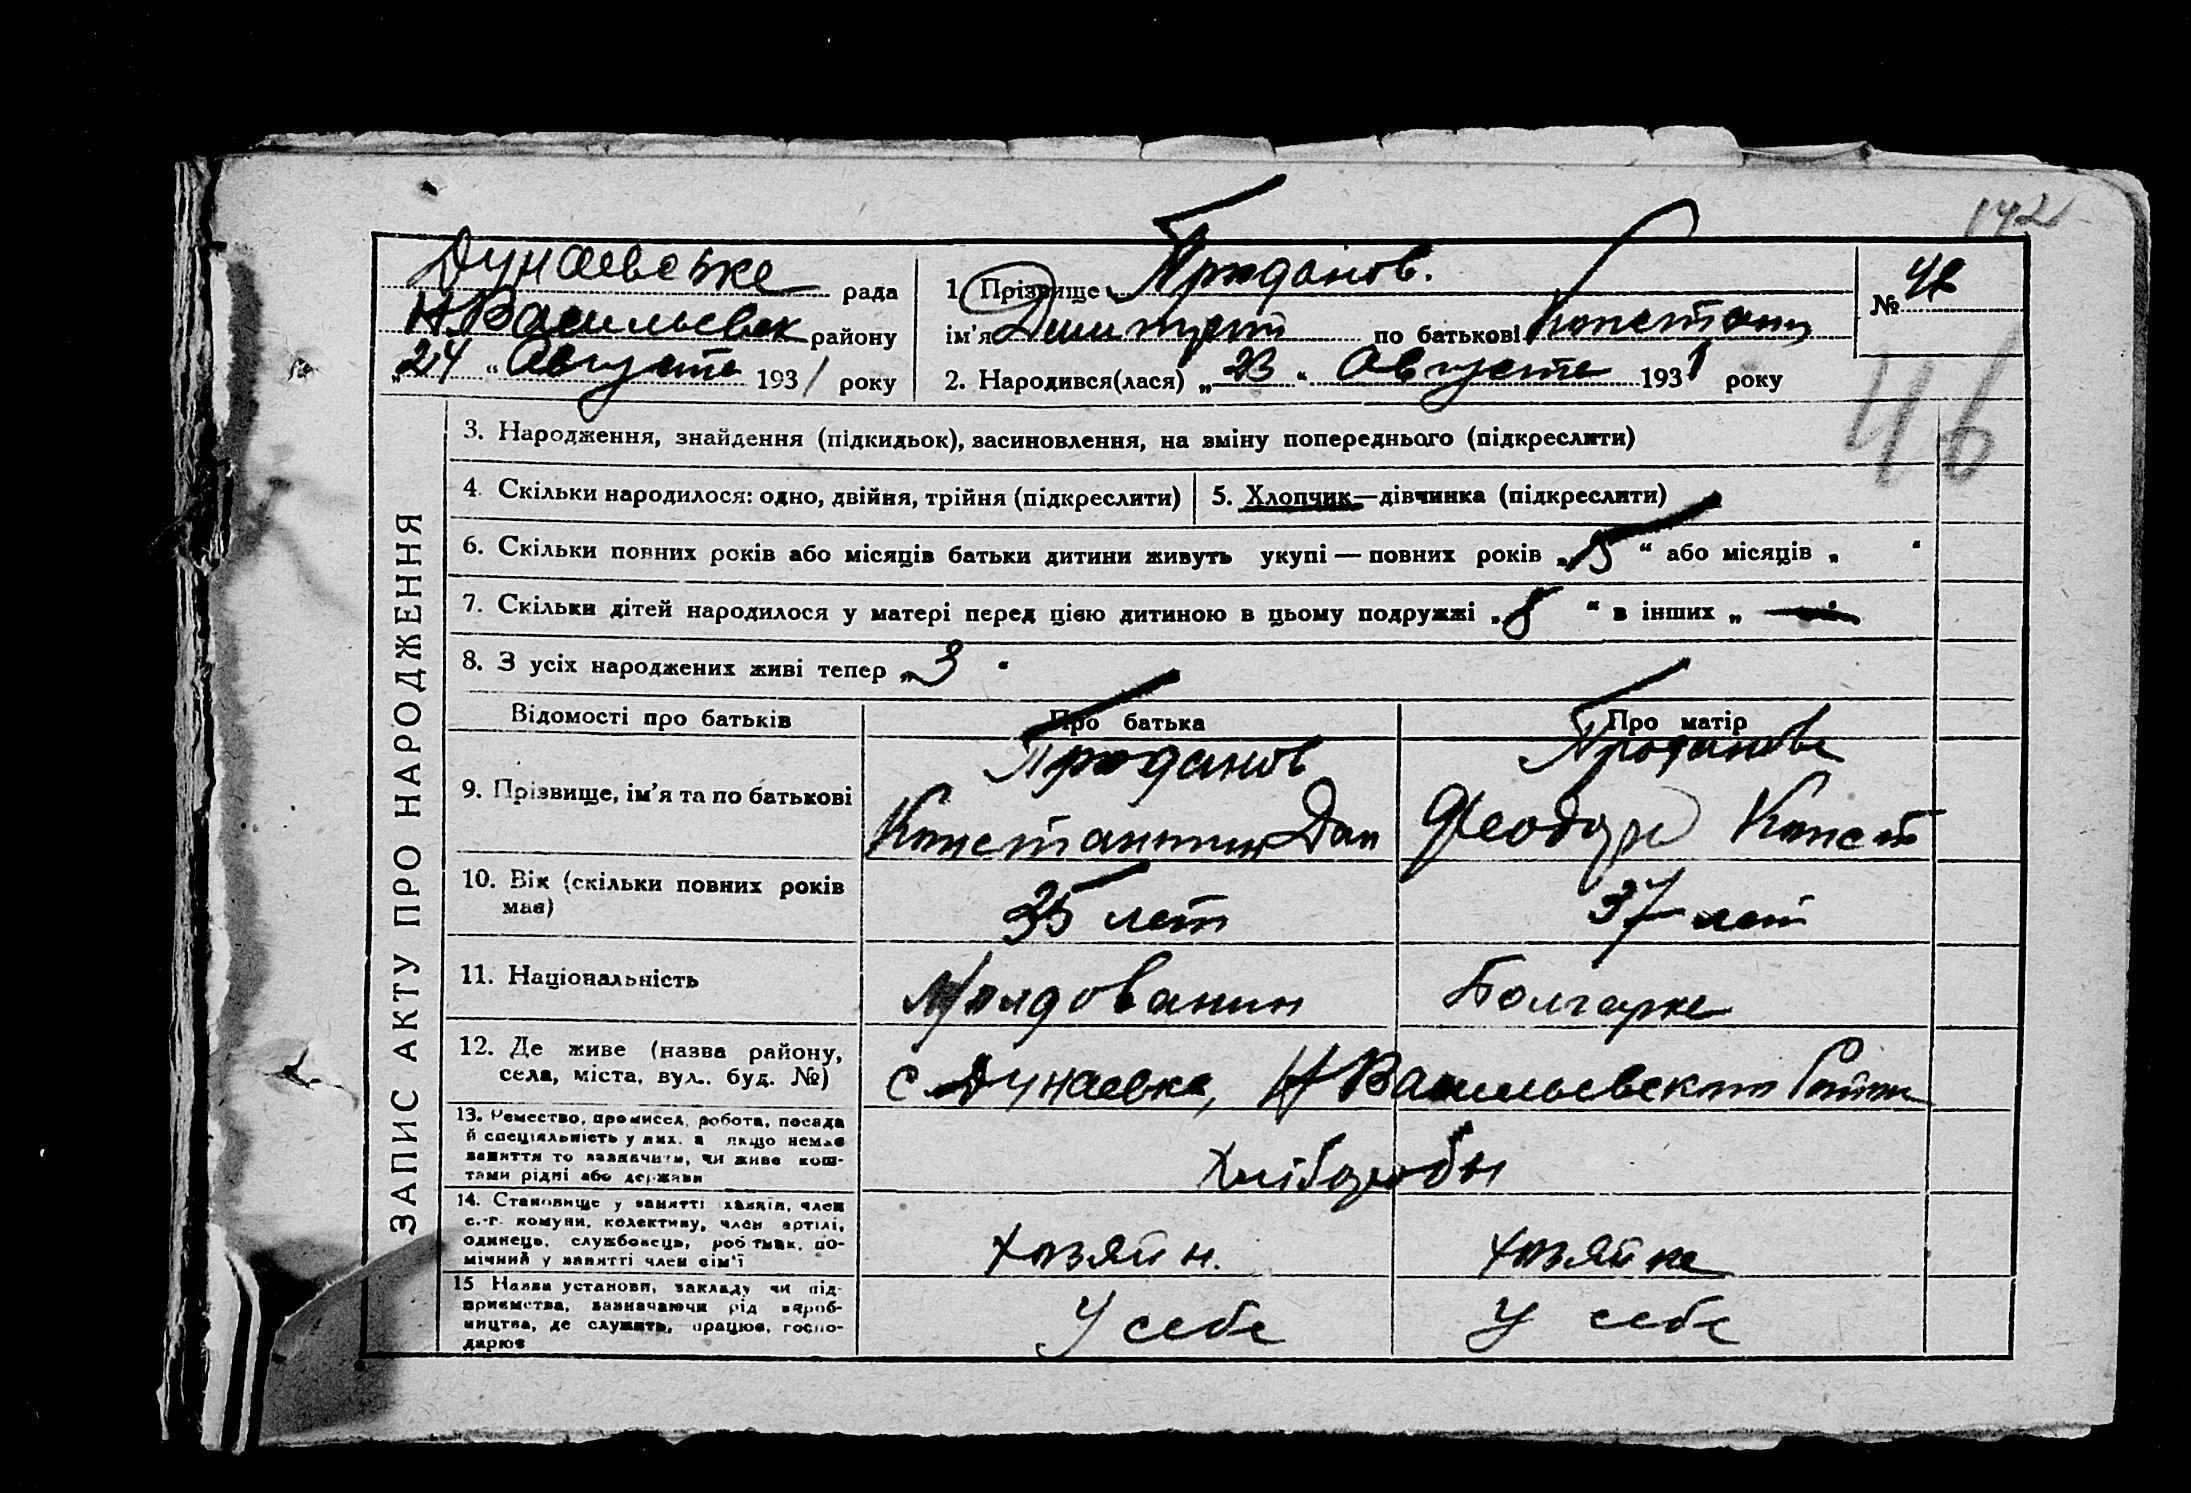 142
Дунаевське рада
Н.Васильевск району
„24“ Августа 1931 року
1. Прізвище Проданов.
ім’я Дмитрий по батькові Констант
2. Народився(лася) „23“ Августа 1931 року
№
46
ЗАПИС АКТУ ПРО НАРОДЖЕННЯ
3. Народження, знайдення (підкидьок), засиновлення, на зміну попереднього (підкреслити)
4. Скільки народилося: одно, двійня, трійня (підкреслити)
5. Хлопчик—дівчинка (підкреслити)
6. Скільки повних років або місяців батьки дитини живуть укупі — повних років „15“ або місяців „ “
7. Скільки дітей народилося у матері перед цією дитиною в цьому подружжі „8“ в інших „ — “
8. З усіх народжених живі тепер „3“
Відомості про батьків Про батька Про матір
9. Прізвище, ім’я та по батькові
Проданов
Константин Дан
Проданова
Феодора Конст
10. Вік (скільки повних років
має)
35 лет
37 лет
11. Національність
Молдованин
Болгарка
12. Де живе (назва району,
села, міста, вул.. буд. №)
с. Дунаевка, Н Васильевского Района
13. Ремество, промисел, робота, посада
й спеціяльність у них, а якщо немає
заняття то зазначити, чи живе кош-
тами рідні або держави
Хлібороби
14. Становище у занятті хазяїн, член
с.-г. комуни, колективу, член артілі,
одинець, службовець, робітник, по-
мічний у занятті член сім’ї
Хозяин.
Хозяйка
15 Назва установи, закладу чи під-
приємства, зазначаючи рід вироб-
ництва, де служить, працює, госпо-
дарює
У себе
У себе